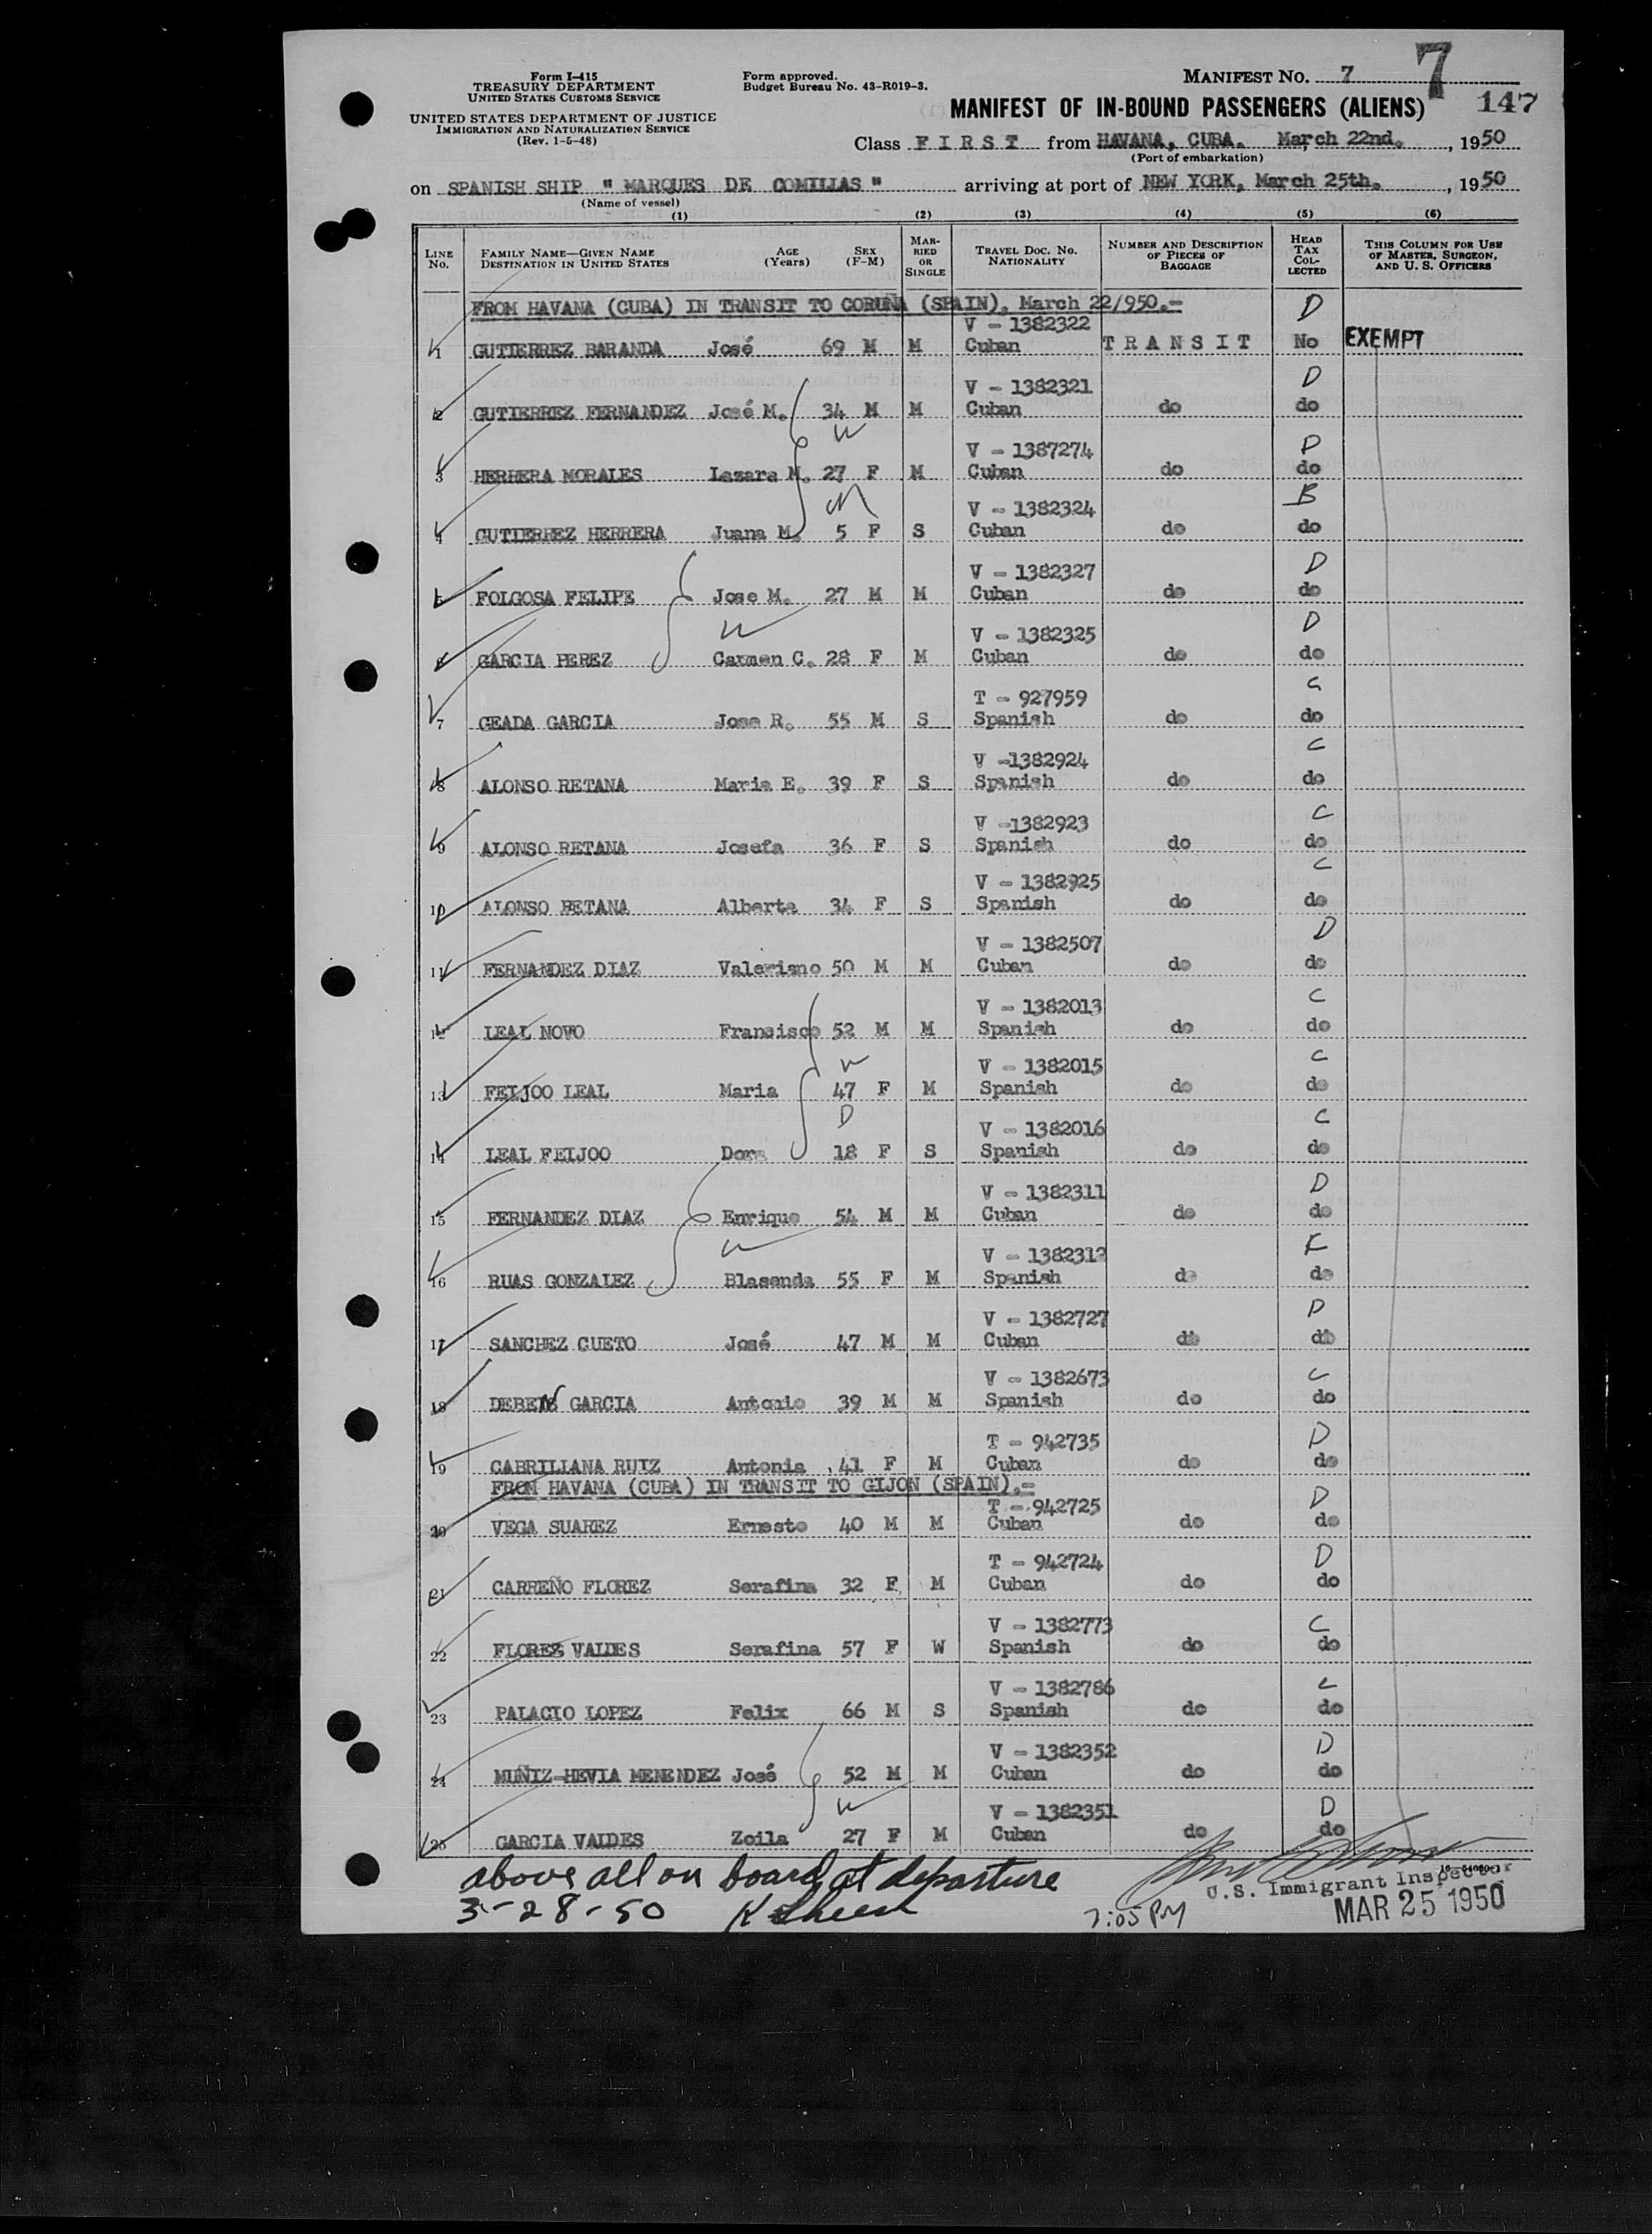 Form I-415
TREASURY DEPARTMENT
UNITED STATES CUSTOMS SERVICE
UNITED STATES DEPARTMENT OF JUSTICE
IMMIGRATION AND NATURALIZATION SERVICE
(Rev. 1-5-48)
Form approved.
Budget Bureau No. 43-R019-3.
MANIFEST NO. 7 7
MANIFEST OF IN-BOUND PASSENGERS (ALIENS) 147
Class F I R S T from HAVANA, CUBA. March 22nd. , 1950
(Port of embarkation)
on SPANISH SHIP " MARQUES DE COMILLAS " arriving at port of NEW YORK, March 25th. , 1950
(Name of vessel)
(1) (2) (3) (4) (5) (6)
LINE No. FAMILY NAME—GIVEN NAME DESTINATION IN UNITED STATES AGE (Years) SEX (F-M) MARRIED OR SINGLE TRAVEL DOC. NO. NATIONALITY NUMBER AND DESCRIPTION OF PIECES OF BAGGAGE HEAD TAX COLLECTED THIS COLUMN FOR USE OF MASTER, SURGEON, AND U. S. OFFICERS
FROM HAVANA (CUBA) IN TRANSIT TO CORUÑA (SPAIN). March 22/950.- D
V - 1382322
1 GUTIERREZ BARANDA José 69 M M Cuban T R A N S I T No EXEMPT
V - 1382321 D
2 GUTIERREZ FERNANDEZ José M. 34 M M Cuban do do
W V - 1387274 D
3 HERRERA MORALES Lazara M. 27 F M Cuban do do
V - 1382324 B
4 GUTIERREZ HERRERA Juana M. 5 F S Cuban do do
V - 1382327 D
5 FOLGOSA FELIPE Jose M. 27 M M Cuban do do
W V - 1382325 D
6 GARCIA PEREZ Carmen C. 28 F M Cuban do do
T - 927959 C
7 GEADA GARCIA Jose R. 55 M S Spanish do do
V -1382924 C
8 ALONSO RETANA Maria E. 39 F S Spanish do do
V -1382923 C
9 ALONSO RETANA Josefa 36 F S Spanish do do
V - 1382925 C
10 ALONSO RETANA Alberta 34 F S Spanish do do
V - 1382507 D
11 FERNANDEZ DIAZ Valeriano 50 M M Cuban do do
V - 1382013 C
12 LEAL NOVO Fransisco 52 M M Spanish do do
W V - 1382015 C
13 FEIJOO LEAL Maria 47 F M Spanish do do
D V - 1382016 C
14 LEAL FEIJOO Dora 18 F S Spanish do do
V - 1382311 D
15 FERNANDEZ DIAZ Enrique 54 M M Cuban do do
W V - 1382312
16 RUAS GONZALEZ Blasenda 55 F M Spanish do do
V - 1382727 D
17 SANCHEZ CUETO José 47 M M Cuban do do
V - 1382673 C
18 DEBEN GARCIA Antonio 39 M M Spanish do do
T - 942735 D
19 CABRILIANA RUIZ Antonia 41 F M Cuban do do
FROM HAVANA (CUBA) IN TRANSIT TO GIJON (SPAIN).-
T - 942725 D
20 VEGA SUAREZ Ernesto 40 M M Cuban do do
T - 942724 D
21 CARREÑO FLOREZ Serafina 32 F M Cuban do do
V - 1382773 C
22 FLOREZ VALDES Serafina 57 F W Spanish do do
V - 1382786 C
23 PALACIO LOPEZ Felix 66 M S Spanish do do
V - 1382352 D
24 MUÑIZ-HEVIA MENENDEZ José 52 M M Cuban do do
W V - 1382351 D
25 GARCIA VALDES Zoila 27 F M Cuban do do
above all on board at departure
3-28-50
7:05 PM
U.S. Immigrant Inspector
MAR 25 1950